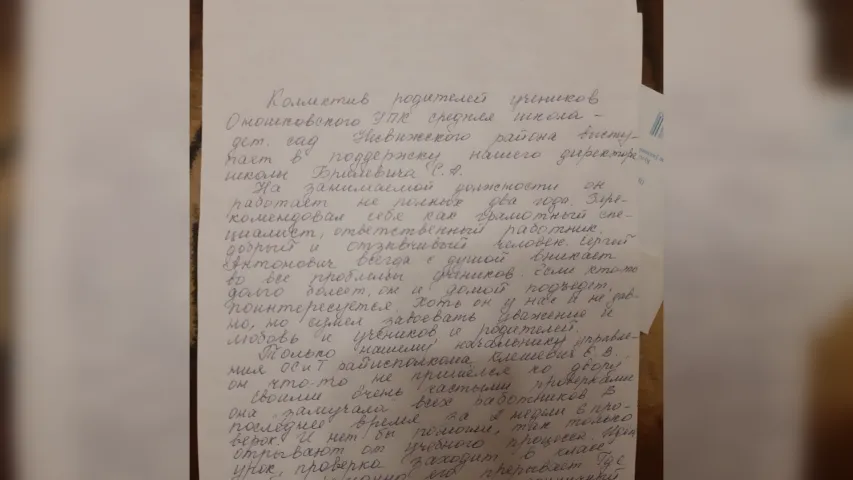 Коллектив родителей учеников
Оношковского УПК средняя школа -
дет. сад Несвижского района высту-
пает в поддержку нашего директора
школы С.А.
На занимаемой должности он
работает не полных два года. Заре-
комендовал себя как грамотный спе-
циалист, ответственный работник,
добрый и отзывчивый человек. Сергей
Антонович всегда с душой вникает
во все проблемы учеников. Если кто-то
долго болеет, он и домой подъедет,
поинтересуется. Хоть он у нас и не дав-
но, но сумел завоевать уважение и
любовь и учеников и родителей.
Только нашему начальнику управле-
ния ОСиТ райисполкома Е.В.
он что-то не пришелся ко двору
Своими очень частыми проверками
она замучала всех работников. В
последнее время за 2 недели 6 про-
верок. И нет бы помогли, так только
отрывают от учебного процесса. Идет
урок, проверка заходит в класс
его прерывает. Где